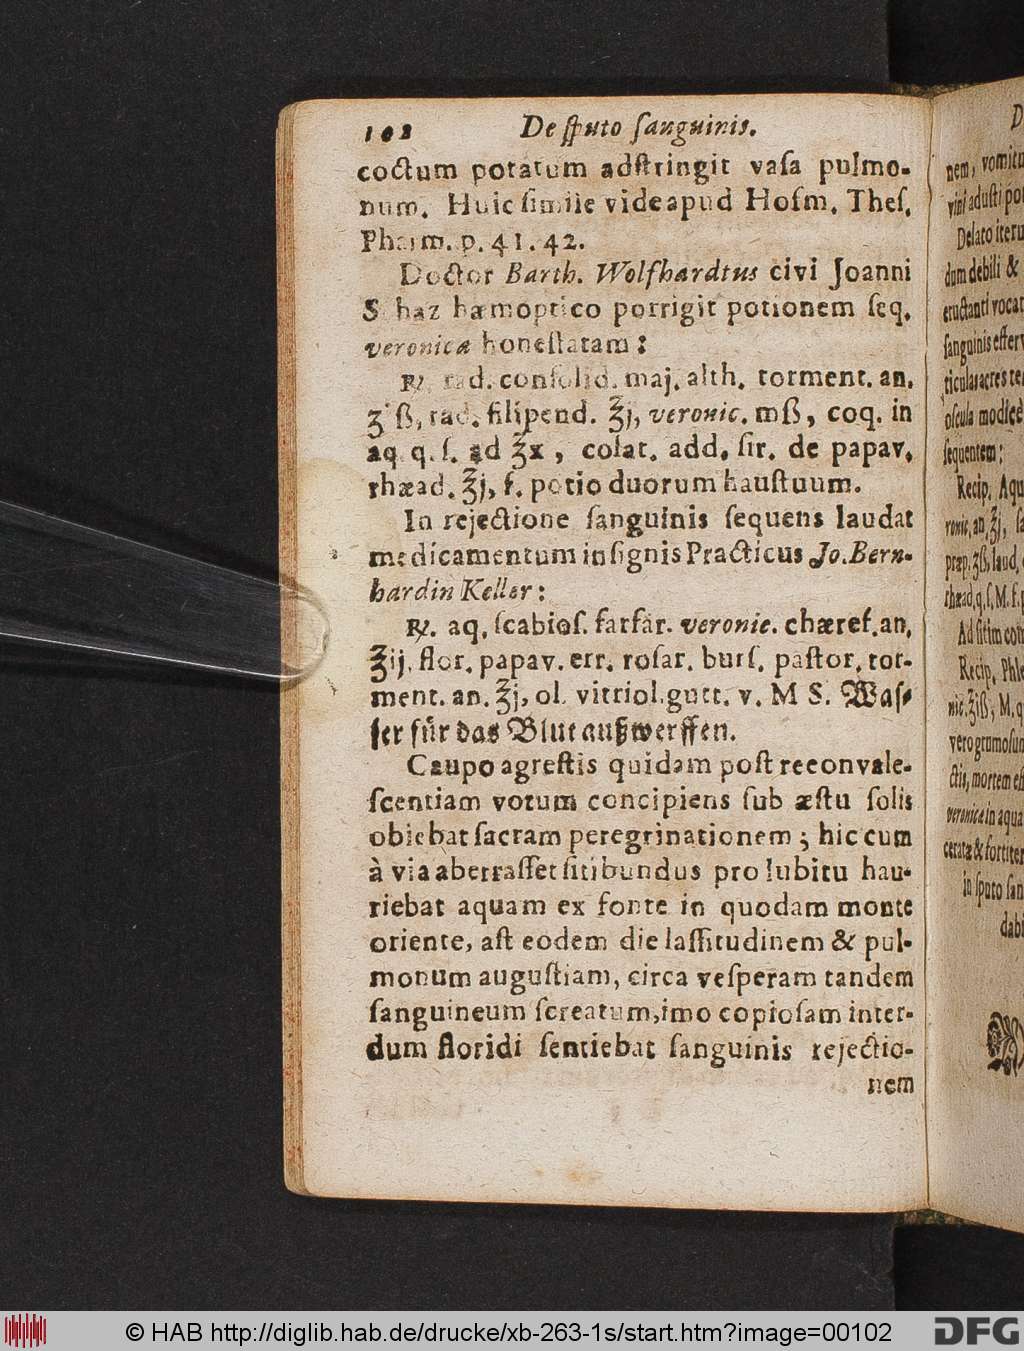 102 De ſputo ſanguinis.
coctum potatum adſtringit vaſa pulmo-
num. Huic ſimile vide apud Hofm. Theſ.
Pharm. p. 41. 42.
Doctor Barth. Wolfhardtus civi Joanni
Schaz hæmoptico porrigit potionem ſeq.
veronicæ honeſtatam:
℞. rad. conſolid. maj. alth. torment. an.
ʒiß, rad. filipend. ℥j, veronic. mß, coq. in
aq. q. ſ. ad ℥x, colat. add. ſir. de papav.
rhæad. ℥j, f. potio duorum hauſtuum.
In rejectione ſanguinis ſequens laudat
medicamentum inſignis Practicus Jo. Bern-
hardin Keller:
℞. aq. ſcabioſ. farfar. veronic. chæref. an.
℥ij, flor. papav. err. roſar. burſ. paſtor. tor-
ment. an. ℥j, ol. vitriol. gutt. v. M S. Waſ-
ſer für das Blut außwerffen.
Caupo agreſtis quidam poſt reconvale-
ſcentiam votum concipiens ſub æſtu ſolis
obiebat ſacram peregrinationem; hic cum
à via aberraſſet ſitibundus pro lubitu hau-
riebat aquam ex fonte in quodam monte
oriente, aſt eodem die laſſitudinem & pul-
monum auguſtiam, circa veſperam tandem
ſanguineum ſcreatum, imo copioſam inter-
dum floridi ſentiebat ſanguinis rejectio-
nem
D
nem, vomitu
vini aduſti po
Delato iteru
dum debili &
eructanti vocat
ſanguinis efferv
ticulas acres te
oſcula modicè
ſequentem:
Recip. Aqu
ronic. an. ℥j, ſa
præp. ʒß, laud.
rhæad. q. ſ. M. f. p
Ad ſitim com
Recip. Phle
nic. ℥iß, M. q
vero grumoſum
ctis, mortem eſ
veronica in aqua
cerata & fortiter
in ſputo ſan
dabi
© HAB http://diglib.hab.de/drucke/xb-263-1s/start.htm?image=00102
DFG